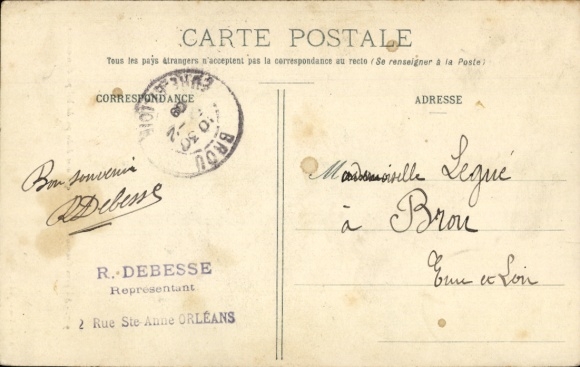 CARTE POSTALE
Tous les pays étrangers n'acceptent pas la correspondance au recto (Se renseigner à la Poste)
CORRESPONDANCE
ADRESSE
BROU
EURE-ET-LOIR
10 30
08
Bon souvenir
R Debesse
Mademoiselle Legué
à Brou
Eure et Loir
R. DEBESSE
Représentant
2 Rue Ste-Anne ORLÉANS